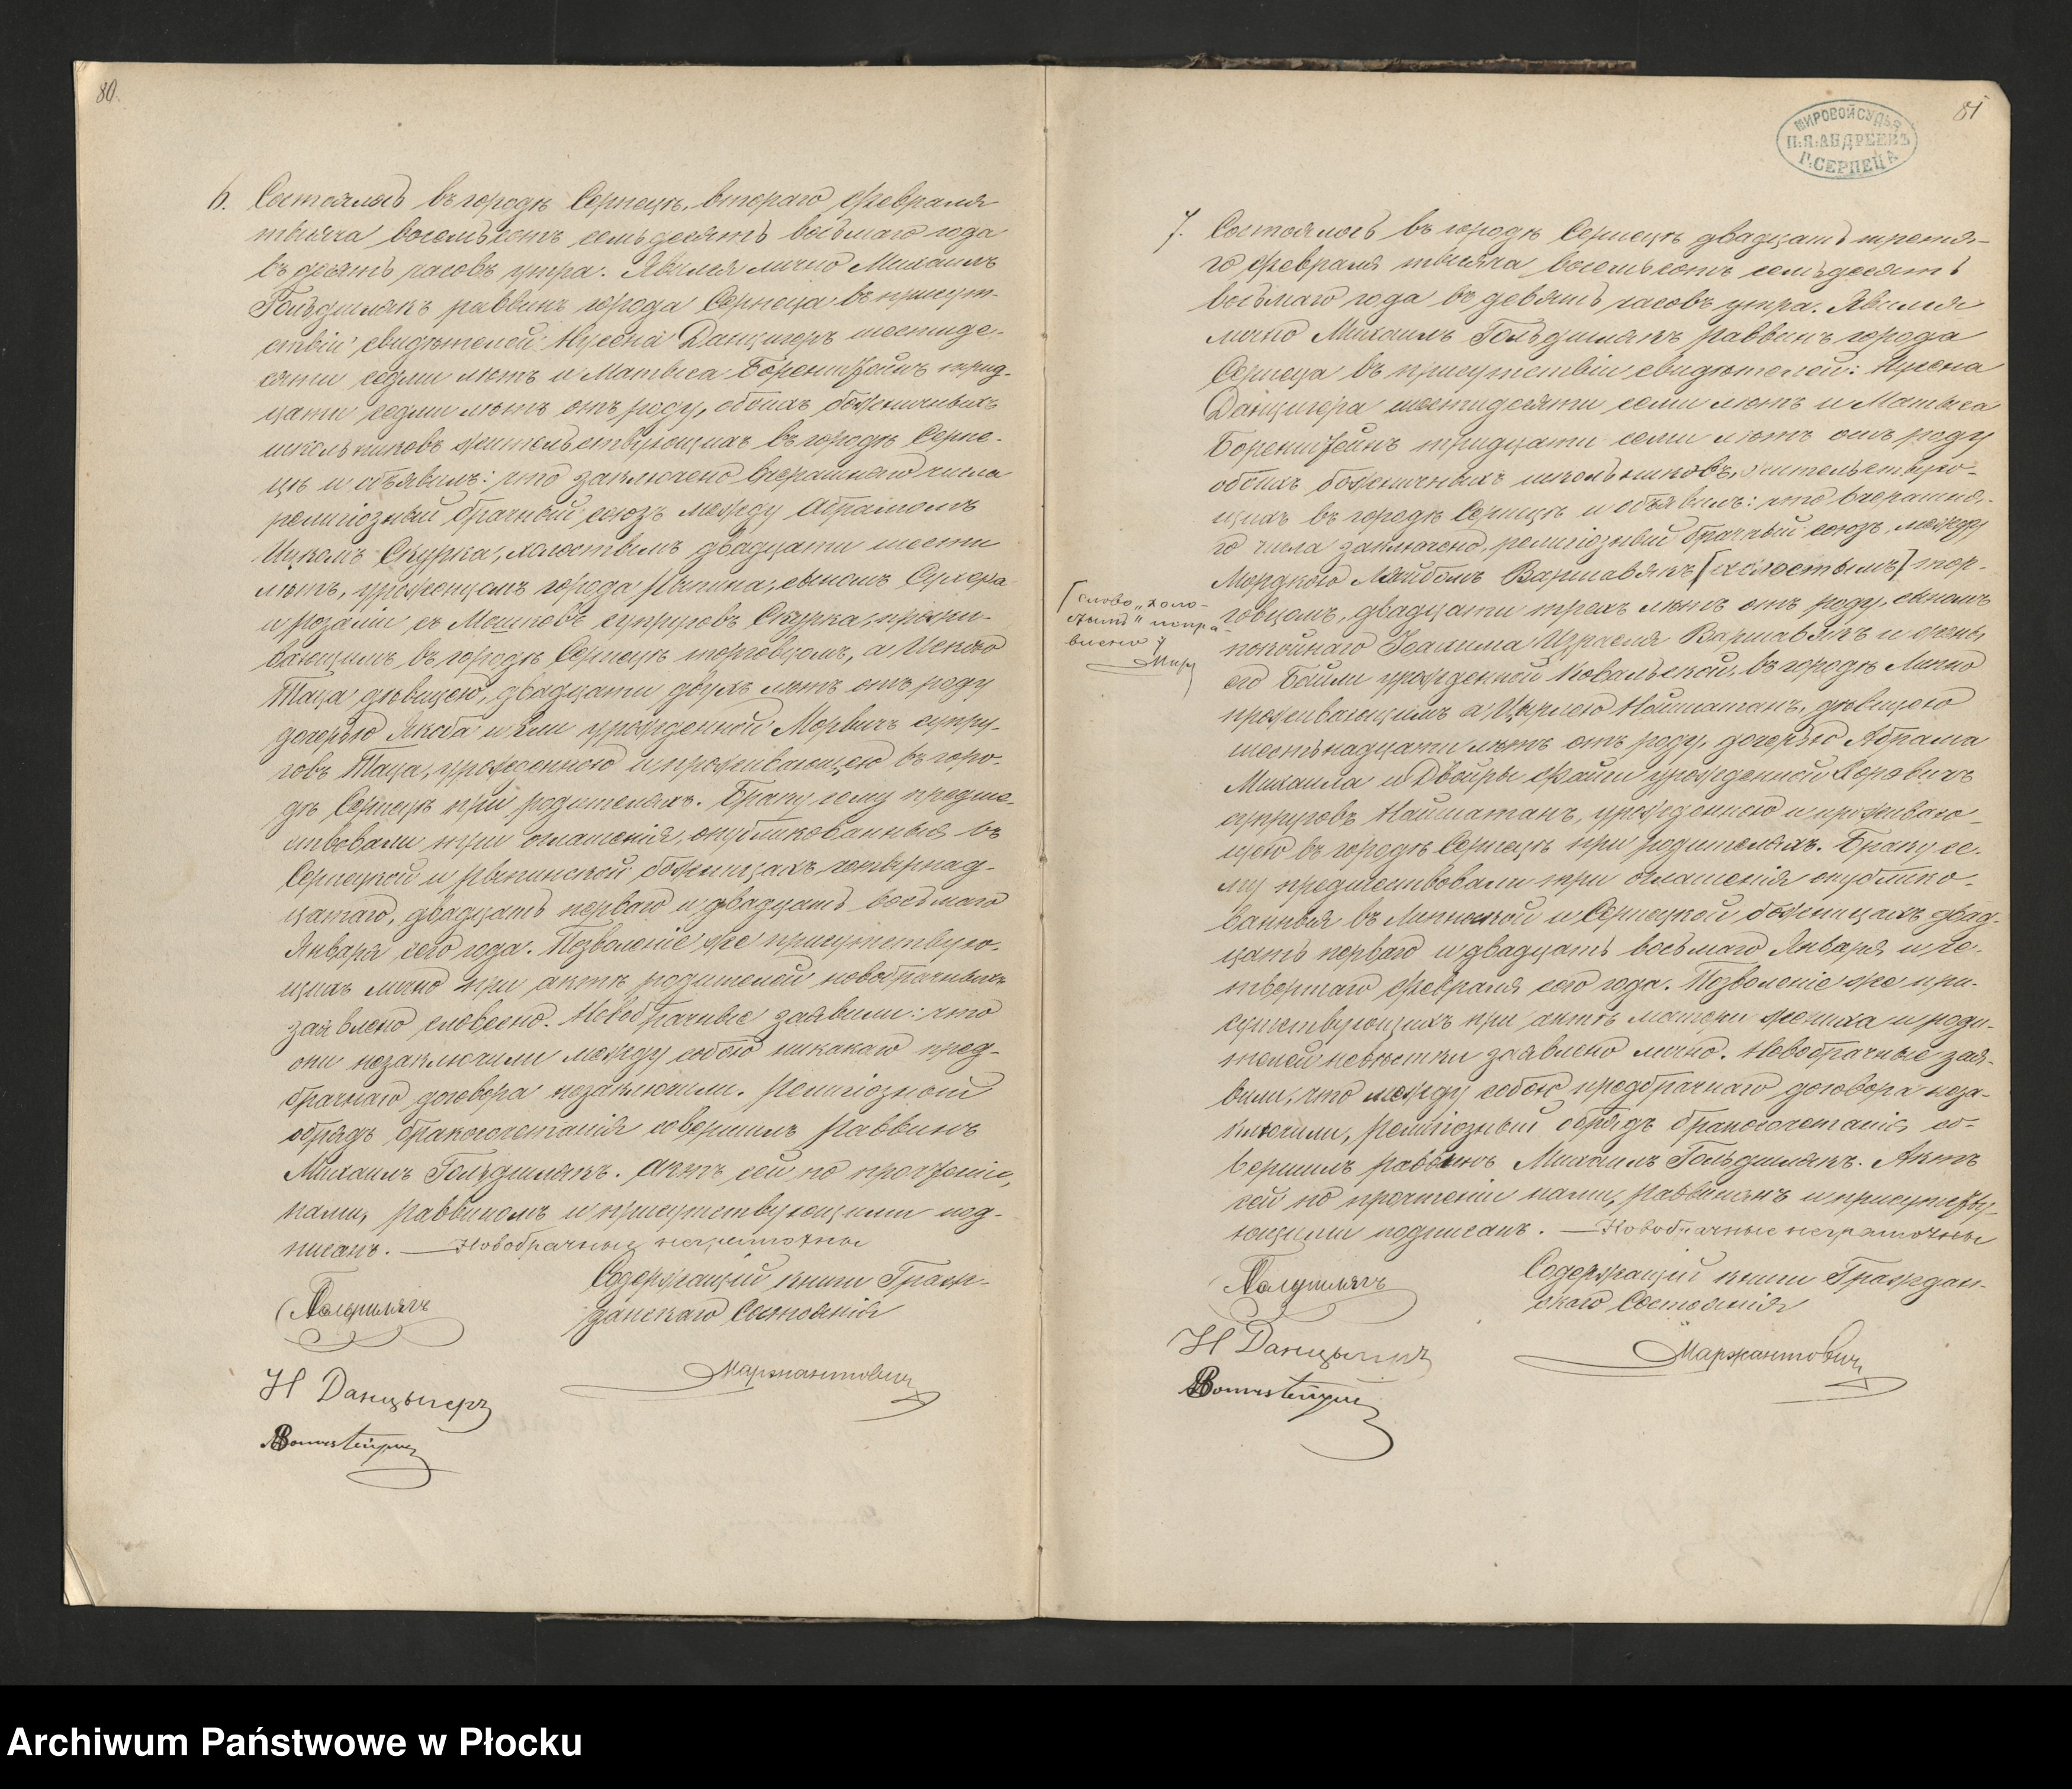 80.
6. Состоялось въ городѣ Серпецѣ, втораго Февраля
тысяча восемьсотъ семьдесятъ восьмаго года
въ десять часовъ утра. Явился лично Михаилъ
Гольдшлякъ раввинъ города Серпеца въ присут-
ствіи свидѣтелей: Нусена Данцигеръ шестиде-
сяти седми лѣтъ и Матыса Боренштейнъ трид-
цати седми лѣтъ отъ роду, обоихъ божничныхъ
школьниковъ жительствующихъ въ городѣ Серпе-
цѣ и объявилъ: что заключено вчерашняго числа
религіозный брачный союзъ между Абрамомъ
Ицкомъ Скурка, холостымъ двадцати шести
лѣтъ, урожденцемъ города Рыпина, сыномъ Сухера
и Розаліи съ Мошковъ супруговъ Скурка, прожи-
вающимъ въ городѣ Серпецѣ торговцемъ, а
Таца дѣвицею, двадцати двухъ лѣтъ отъ роду
дочерью Якоба и урожденной супру-
говъ Таца, урожденною и проживающею въ горо-
дѣ Серпецѣ при родителяхъ. Браку сему предше-
ствовали три оглашенія, опубликованныя въ
Серпецкой и Рыпинской божницахъ четырнад-
цатаго, двадцать перваго и двадцать восьмаго
Января сего года. Позволеніе же присутствую-
щихъ лично при актѣ родителей новобрачныхъ
заявлено словесно. Новобрачные заявили: что
они незаключили между собою никакаго пред-
брачнаго договора незаключили. Религіозный
обрядъ бракосочетанія совершилъ раввинъ
Михаилъ Гольдшлякъ. Актъ сей по прочтеніи,
нами, раввиномъ и присутствующими под-
писанъ. — Новобрачные неграмотные
Содержащій книги Граж-
данскаго Состоянія
Голдшлякъ
Маржантовичъ
Н Данцыгеръ
MBornsztejn
81
МИРОВОЙ СУДЬЯ
П.Я.АНДРЕЕВЪ
Г.СЕРПЕЦА
7. Состоялось въ городѣ Серпецѣ двадцать третья-
го Февраля тысяча восемьсотъ семьдесятъ
восьмаго года въ девять часовъ утра. Явился
лично Михаилъ Гольдшлякъ раввинъ города
Серпеца въ присутствіи свидѣтелей: Нусена
Данцигера шестидесяти семи лѣтъ и Матыса
Боренштейнъ тридцати семи лѣтъ отъ роду
обоихъ божничныхъ школьниковъ, жительствую-
щихъ въ городѣ Серпецѣ и объявилъ: что вчерашня-
го числа заключено религіозный брачный союзъ, между
Мордкою Лайбомъ Варшавякъ [холостымъ] тор-
говцемъ, двадцати трехъ лѣтъ отъ роду, сыномъ
покойнаго Іоахима Израеля Варшавякъ и жены
его Байли урожденной Ковальской, въ городѣ Липно
проживающимъ а Цырлею Найматанъ, дѣвицею
шестьнадцати лѣтъ отъ роду, дочерью Абрама
Михаила и Двойры Файги урожденной
супруговъ Найматанъ, урожденною и проживаю-
щею въ городѣ Серпецѣ при родителяхъ. Браку се-
му предшествовали три оглашенія опублико-
ванныя въ Липновской и Серпецкой божницахъ двад-
цать перваго и двадцать восьмаго Января и че-
твертаго Февраля сего года. Позволеніе же при-
сутствующихъ при актѣ матери жениха и роди-
телей невѣстки заявлено лично. Новобрачные зая-
вили, что между собою предбрачнаго договора неза-
ключили, религіозный обрядъ бракосочетанія со-
вершилъ раввинъ Михаилъ Гольдшлякъ. Актъ
сей по прочтеніи нами, раввиномъ и присутству-
ющими подписанъ. — Новобрачные неграмотные
[слово „холо-
стымъ" попра-
влено]
Марж
Содержащій книги Граждан-
скаго Состоянія
Голдшлякъ
Маржантовичъ
Н Данцыгеръ
MBornsztejn
Archiwum Państwowe w Płocku